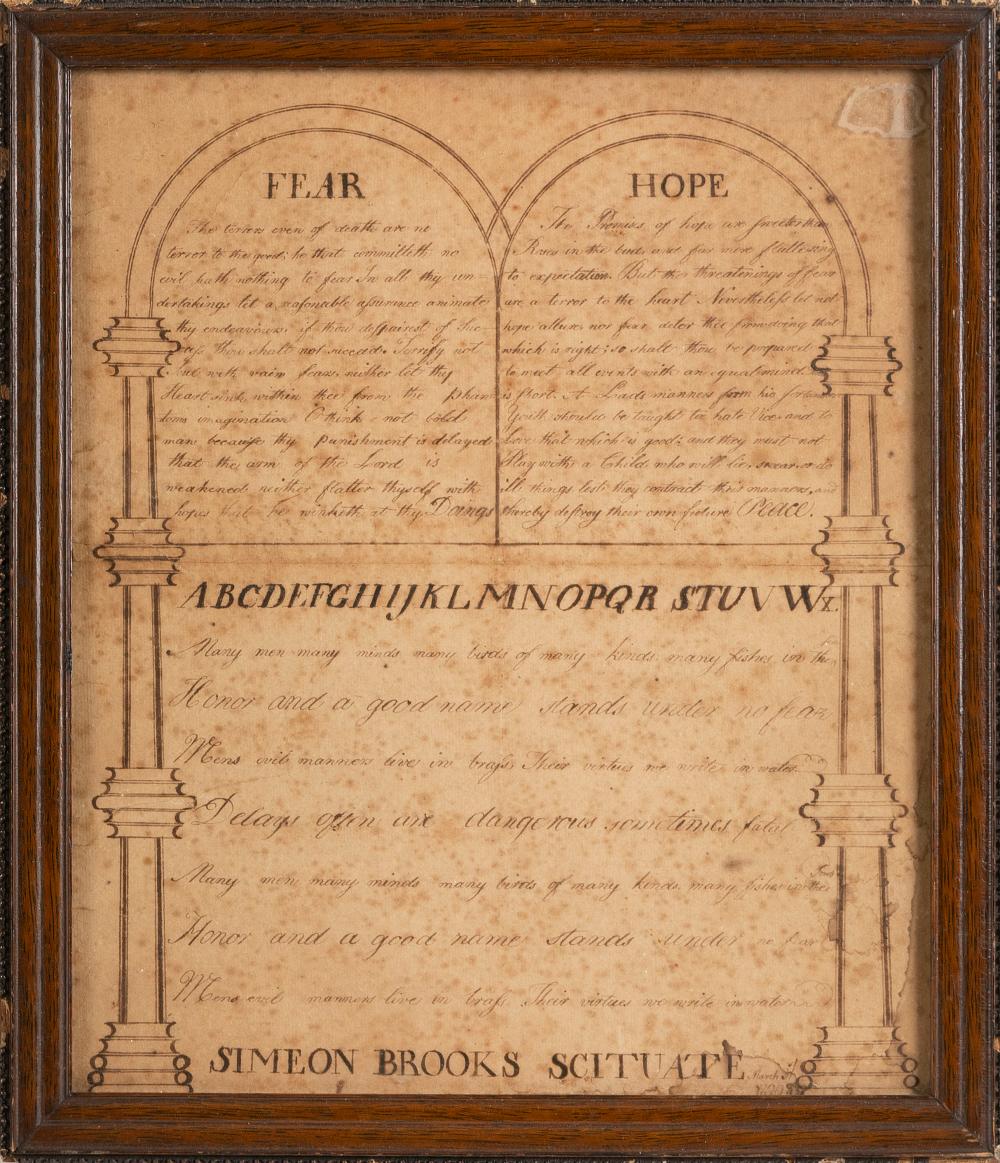 FEAR
The terrors even of death are no
terror to the good; he that committeth no
evil hath nothing to fear In all thy un-
dertakings let a reasonable assurance animate
thy endeavours, if thou despairest of Suc-
cess thou shalt not succeed. Terrify not
with vain fears, neither let thy
Heart sink within thee from the phan
toms imagination O think not bold
man because thy punishment is delayed
that the arm of the Lord is
weakened neither flatter thyself with
hopes that he winketh at thy Doings
HOPE
The Promises of hope are sweeter than
Roses in the bud and far more flattering
to expectation. But the threatenings of fear
are a terror to the heart Nevertheless let not
hope allure, nor fear deter thee from doing that
which is right; so shalt thou be prepared
to meet all events with an equal mind.
is short. A Lads manners form his fortune
Youth should be taught to hate Vice and to
Love that which is good; and they must not
Play with a Child who will lie, swear or do
ill things lest they contract their manners, and
thereby destroy their own future Peace.
ABCDEFGHIJKLMNOPQR STUVWX.
Many men many minds many birds of many kinds many fishes in the
Honor and a good name stands under no fear
Mens evil manners live in brass Their virtues we write in water
Delays often are dangerous sometimes fatal
Many men many minds many birds of many kinds many fishes in the
Honor and a good name stands under no fear
Mens evil manners live in brass Their virtues we write in water
SIMEON BROOKS SCITUATE
March